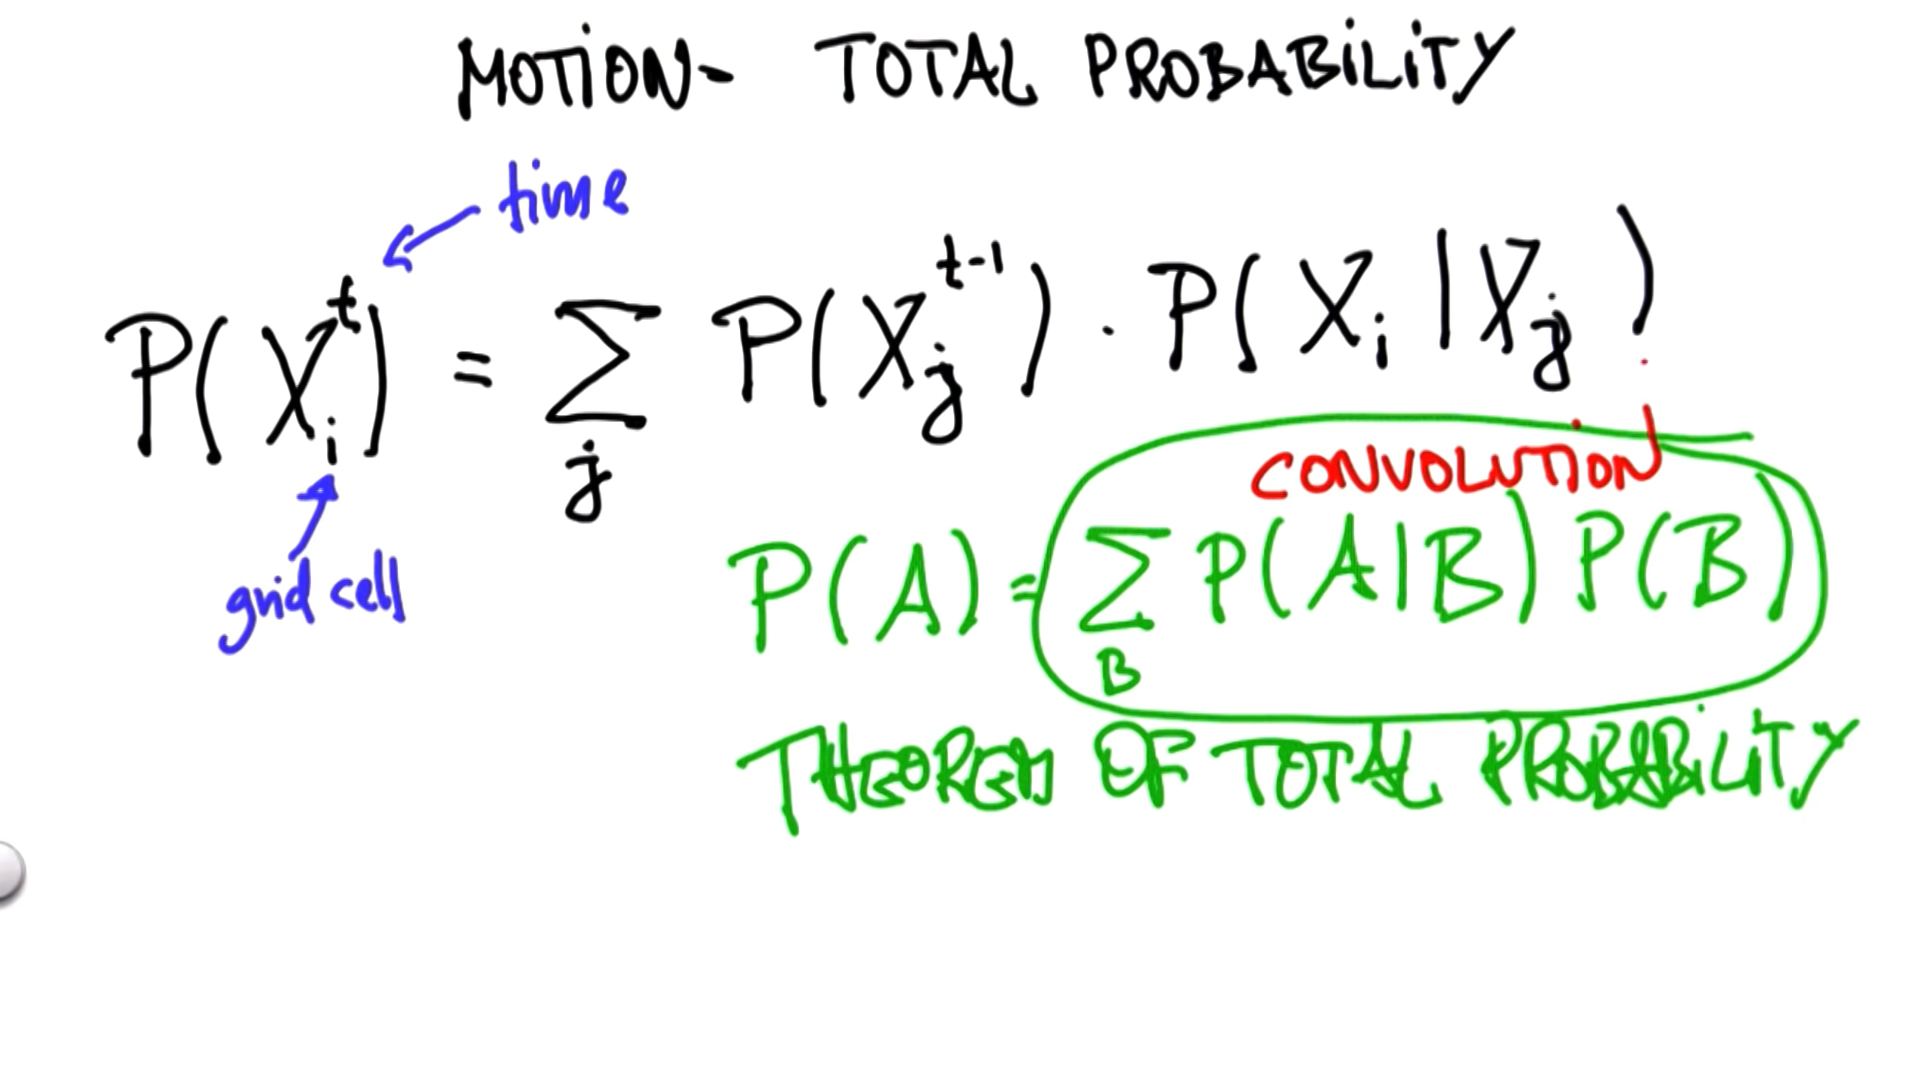 MOTION - TOTAL PROBABILITY
time
P(X_i^t) = Σ_j P(X_j^{t-1}) · P(X_i | X_j)
grid cell
CONVOLUTION
P(A) = Σ_B P(A|B) P(B)
THEOREM OF TOTAL PROBABILITY